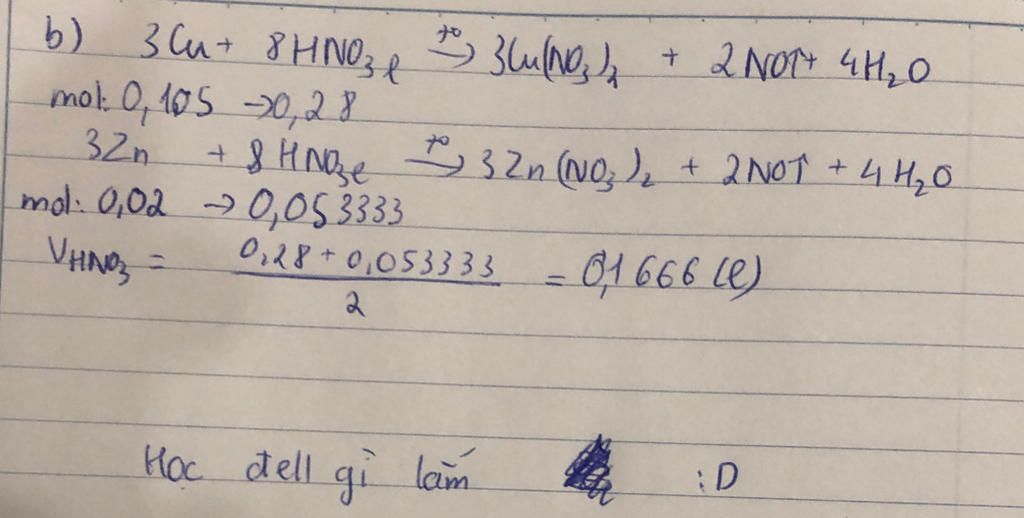 b) 3Cu + 8HNO₃ℓ →(t°) 3Cu(NO₃)₂ + 2NO↑ + 4H₂O
mol: 0,105 → 0,28
3Zn + 8HNO₃ℓ →(t°) 3Zn(NO₃)₂ + 2NO↑ + 4H₂O
mol: 0,02 → 0,053333
V_HNO₃ = (0,28 + 0,053333)/2 = 0,1666 (ℓ)
Học đell gì lắm :D